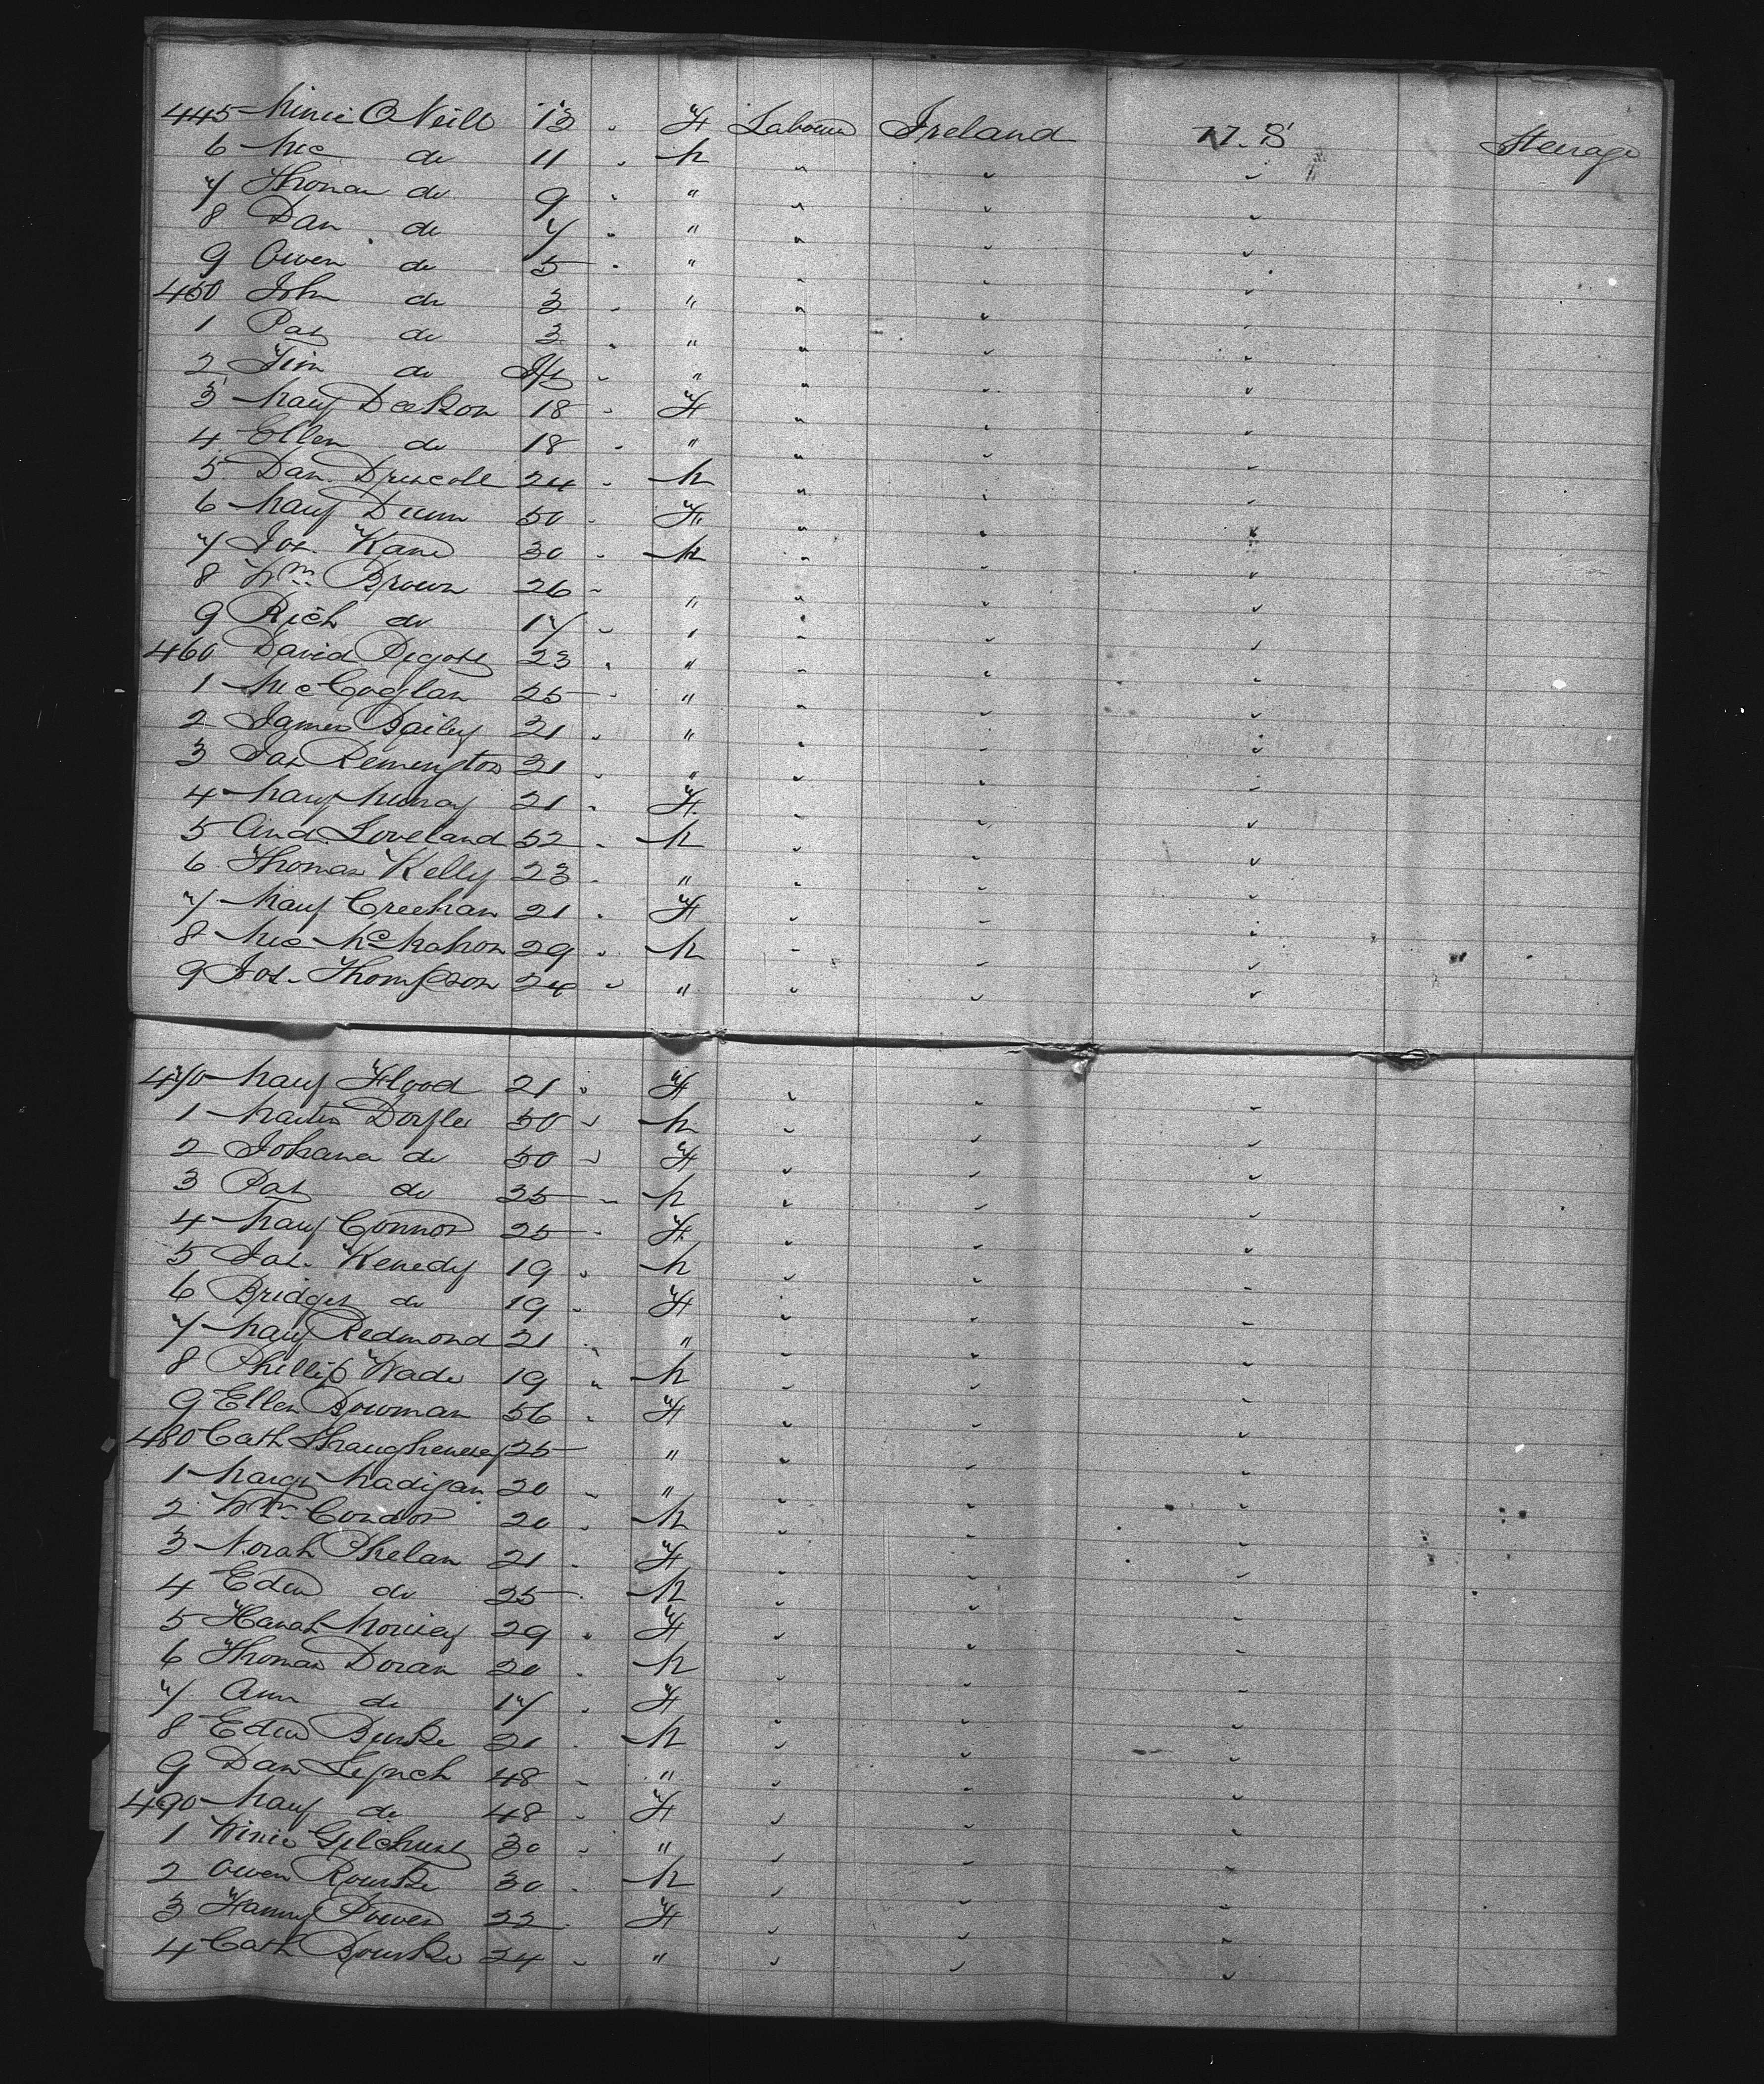 445 Minie O Neill 13 " F Laborer Ireland U.S Steerage
6 Mic do 11 " M " " "
7 Thomas do 9 " " " " "
8 Dan do 7 " " " " "
9 Owen do 5 " " " " "
450 John do 3 " " " " "
1 Pat do 3 " " " " "
2 Tim do Inf " " " " "
3 Mary Deekon 18 " F " " "
4 Ellen do 18 " " " " "
5 Dan Driscoll 24 " M " " "
6 Mary Dunn 50 " F " " "
7 Jos. Kane 30 " M " " "
8 Wm Brown 26 " " " " "
9 Rich do 17 " " " " "
460 David Pigott 23 " " " " "
1 Mic Coglan 25 " " " " "
2 James Bailey 21 " " " " "
3 Jas Remington 21 " " " " "
4 Mary Murray 21 " F " " "
5 And. Loveland 52 " M " " "
6 Thomas Kelly 23 " " " " "
7 Mary Creehan 21 " F " " "
8 Mic McMahon 29 " M " " "
9 Jos. Thompson 24 " " " " "
470 Mary Flood 21 " F " " "
1 Martin Doyle 50 " M " " "
2 Johana do 50 " F " " "
3 Pat do 25 " M " " "
4 Mary Connor 25 " F " " "
5 Jas. Kenedy 19 " M " " "
6 Bridget do 19 " F " " "
7 Mary Redmond 21 " " " " "
8 Phillip Wade 19 " M " " "
9 Ellen Bowman 56 " F " " "
480 Cath Shaughnessy 25 " " " "
1 Margt Madigan 20 " " " " "
2 Wm Condon 20 " M " " "
3 Norah Phelan 21 " F " " "
4 Edw do 25 " M " " "
5 Hanah 29 " F " " "
6 Thomas Doran 20 " M " " "
7 Ann do 17 " F " " "
8 Edw Burke 21 " M " " "
9 Dan Lynch 48 " " " " "
490 Mary do 48 " F " " "
1 Winie Gilchrist 30 " " " " "
2 Owen Rourke 30 " M " " "
3 Fanny Power 22 " F " " "
4 Cath Bourke 24 " " " " "